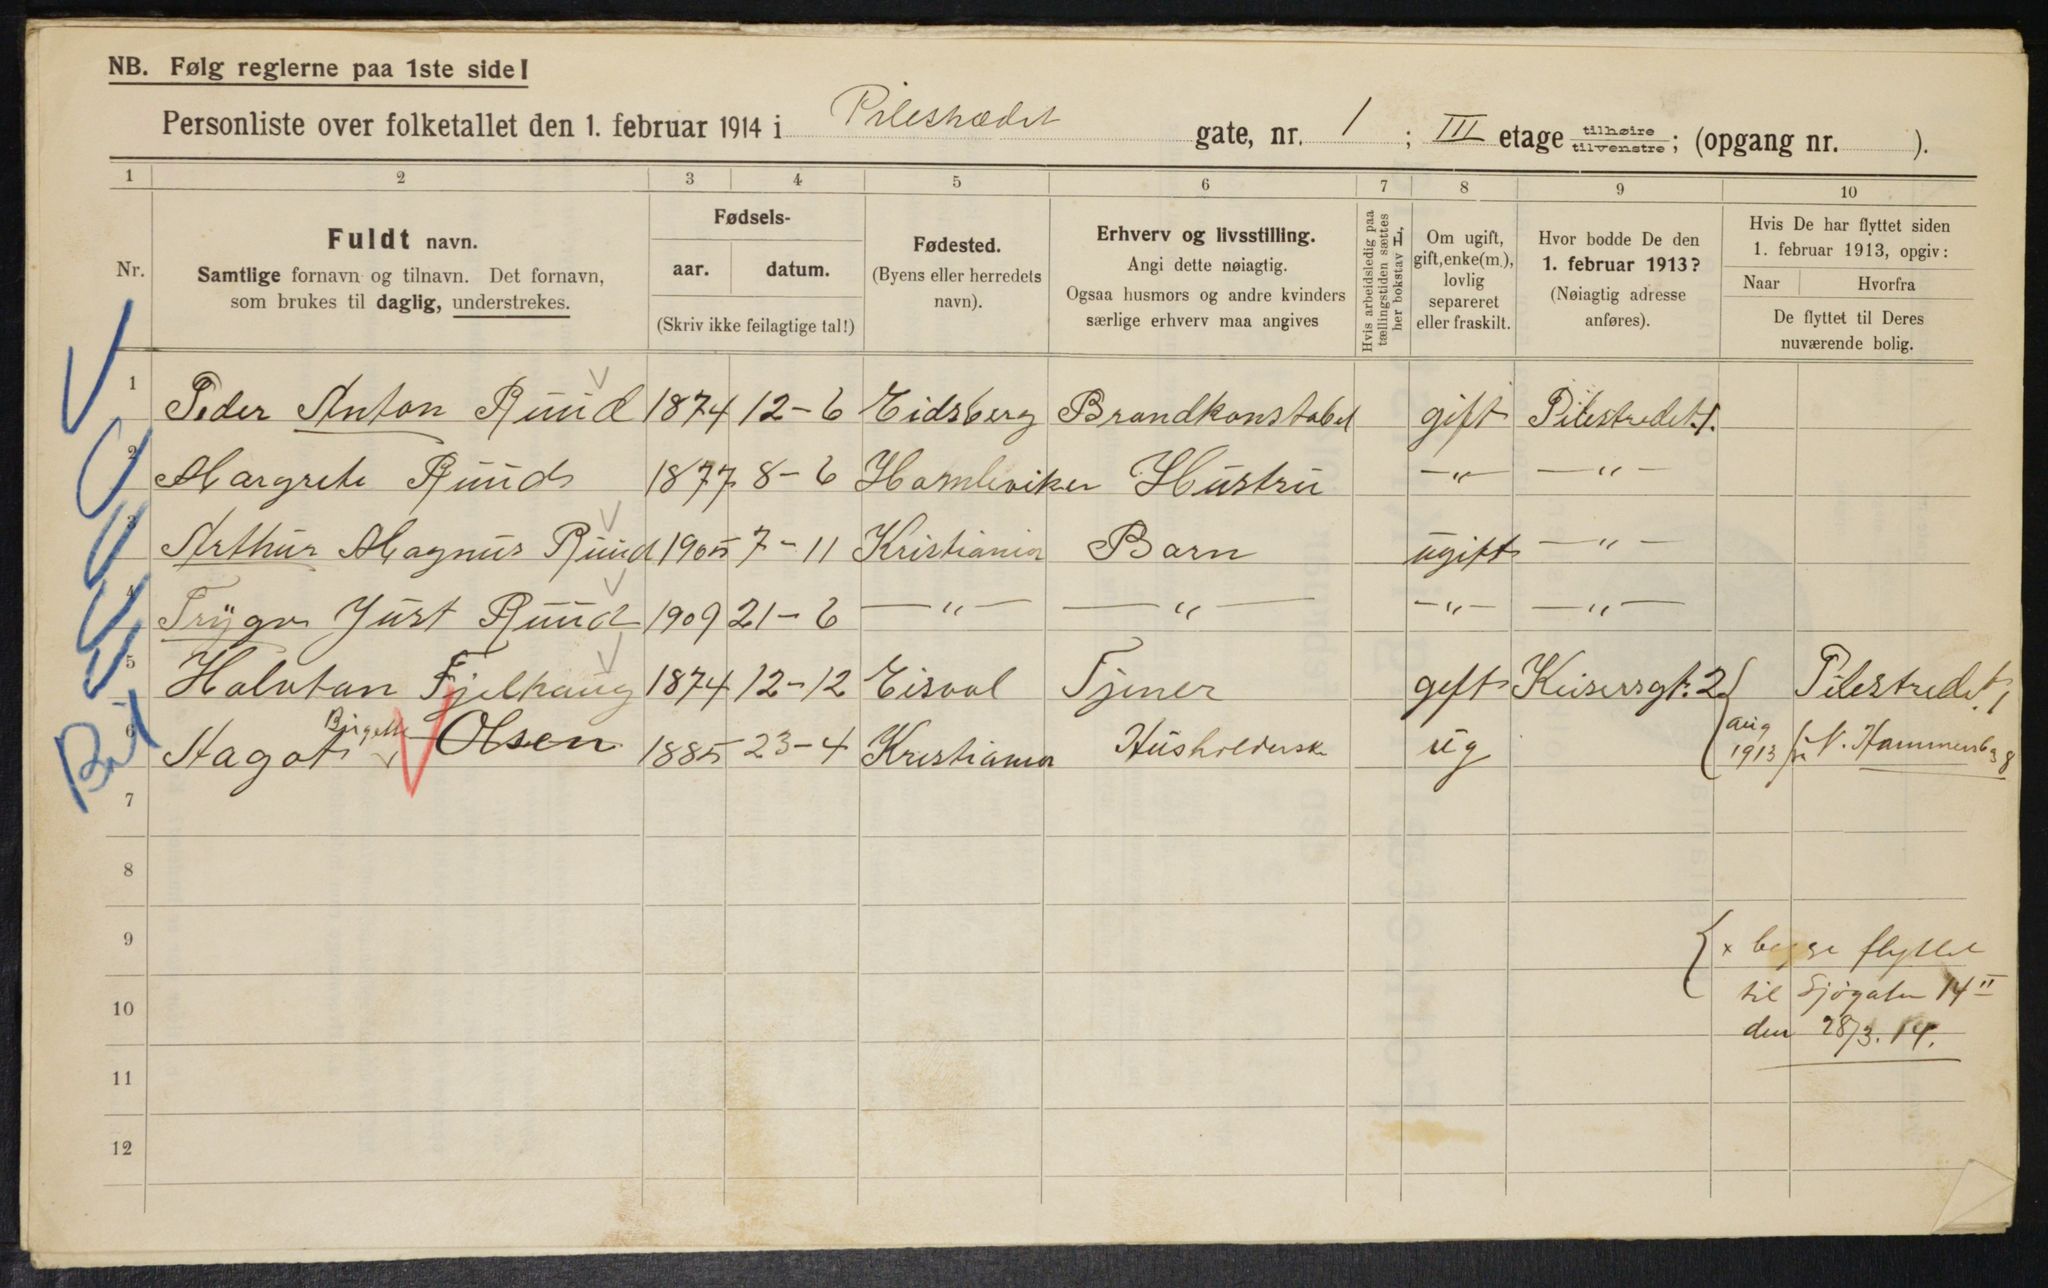 NB. Følg reglerne paa 1ste side!
Personliste over folketallet den 1. februar 1914 i Pilestrædet gate, nr. 1 ; III etage tilhøire tilvenstre; (opgang nr. ).
1 2 3 4 5 6 7 8 9 10
Nr.
Fuldt navn.
Samtlige fornavn og tilnavn. Det fornavn,
som brukes til daglig, understrekes.
Fødsels-
aar. datum.
(Skriv ikke feilagtige tal!)
Fødested.
(Byens eller herredets
navn).
Erhverv og livsstilling.
Angi dette nøiagtig.
Ogsaa husmors og andre kvinders
særlige erhverv maa angives
Hvis arbeidsledig paa
tællingstiden sættes
her bokstav H.
Om ugift,
gift, enke(m.),
lovlig
separeret
eller fraskilt.
Hvor bodde De den
1. februar 1913?
(Nøiagtig adresse
anføres).
Hvis De har flyttet siden
1. februar 1913, opgiv:
Naar Hvorfra
De flyttet til Deres
nuværende bolig.
1 Peder Anton Ruud 1874 12-6 Eidsberg Brandkonstabel gift Pilestredet 1.
2 Margrete Ruud 1877 8-6 Hustru -"- -"-
3 Arthur Magnus Ruud 1905 7-11 Kristiania Barn ugift -"-
4 Trygve Just Ruud 1909 21-6 -"- -"- -"- -"-
5 Halvtan Fjelhaug 1874 12-12 Eisvol Tjener gift Keisersgt. 2 { Pilestredet 1
6 Hagot Birgette Olsen 1885 23-4 Kristiania Husholderske ug aug 1913 N. Hammersb 38
7
8
9 { x begge flyttet
10 til Sjøgaten 14 II
den 28/3. 14.
11
12